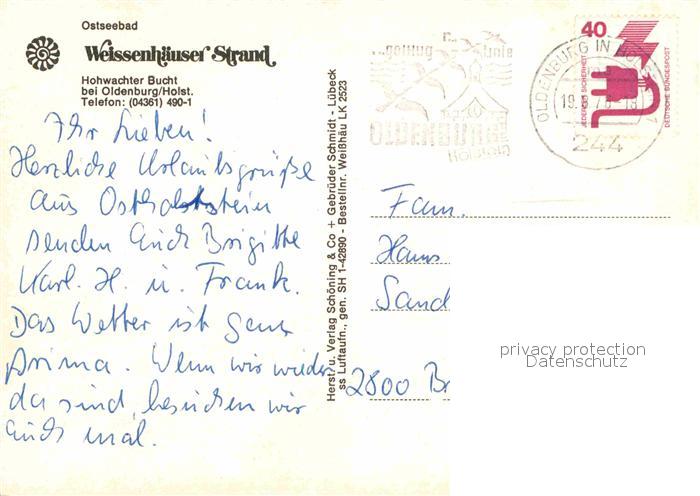 Ostseebad
Weissenhäuser Strand
Hohwachter Bucht
bei Oldenburg/Holst.
Telefon: (04361) 490-1
Ihr Lieben!
Herzliche Urlaubsgrüße
aus Ostholstein
senden Euch Brigitte
Karl. H. u. Frank.
Das Wetter ist ganz
prima. Wenn wir wieder
da sind, besuchen wir
Euch mal.
Herst. u. Verlag Schöning & Co + Gebrüder Schmidt - Lübeck
ss Luftaufn., gen. SH 1-42890 - Bestellnr. Weißhäu LK 2523
OLDENBURG
HOLSTEIN
OLDENBURG IN HOLST
244
40
JEDERZEIT SICHERHEIT
DEUTSCHE BUNDESPOST
Fam.
Hans
Sand
2800 Br
privacy protection
Datenschutz